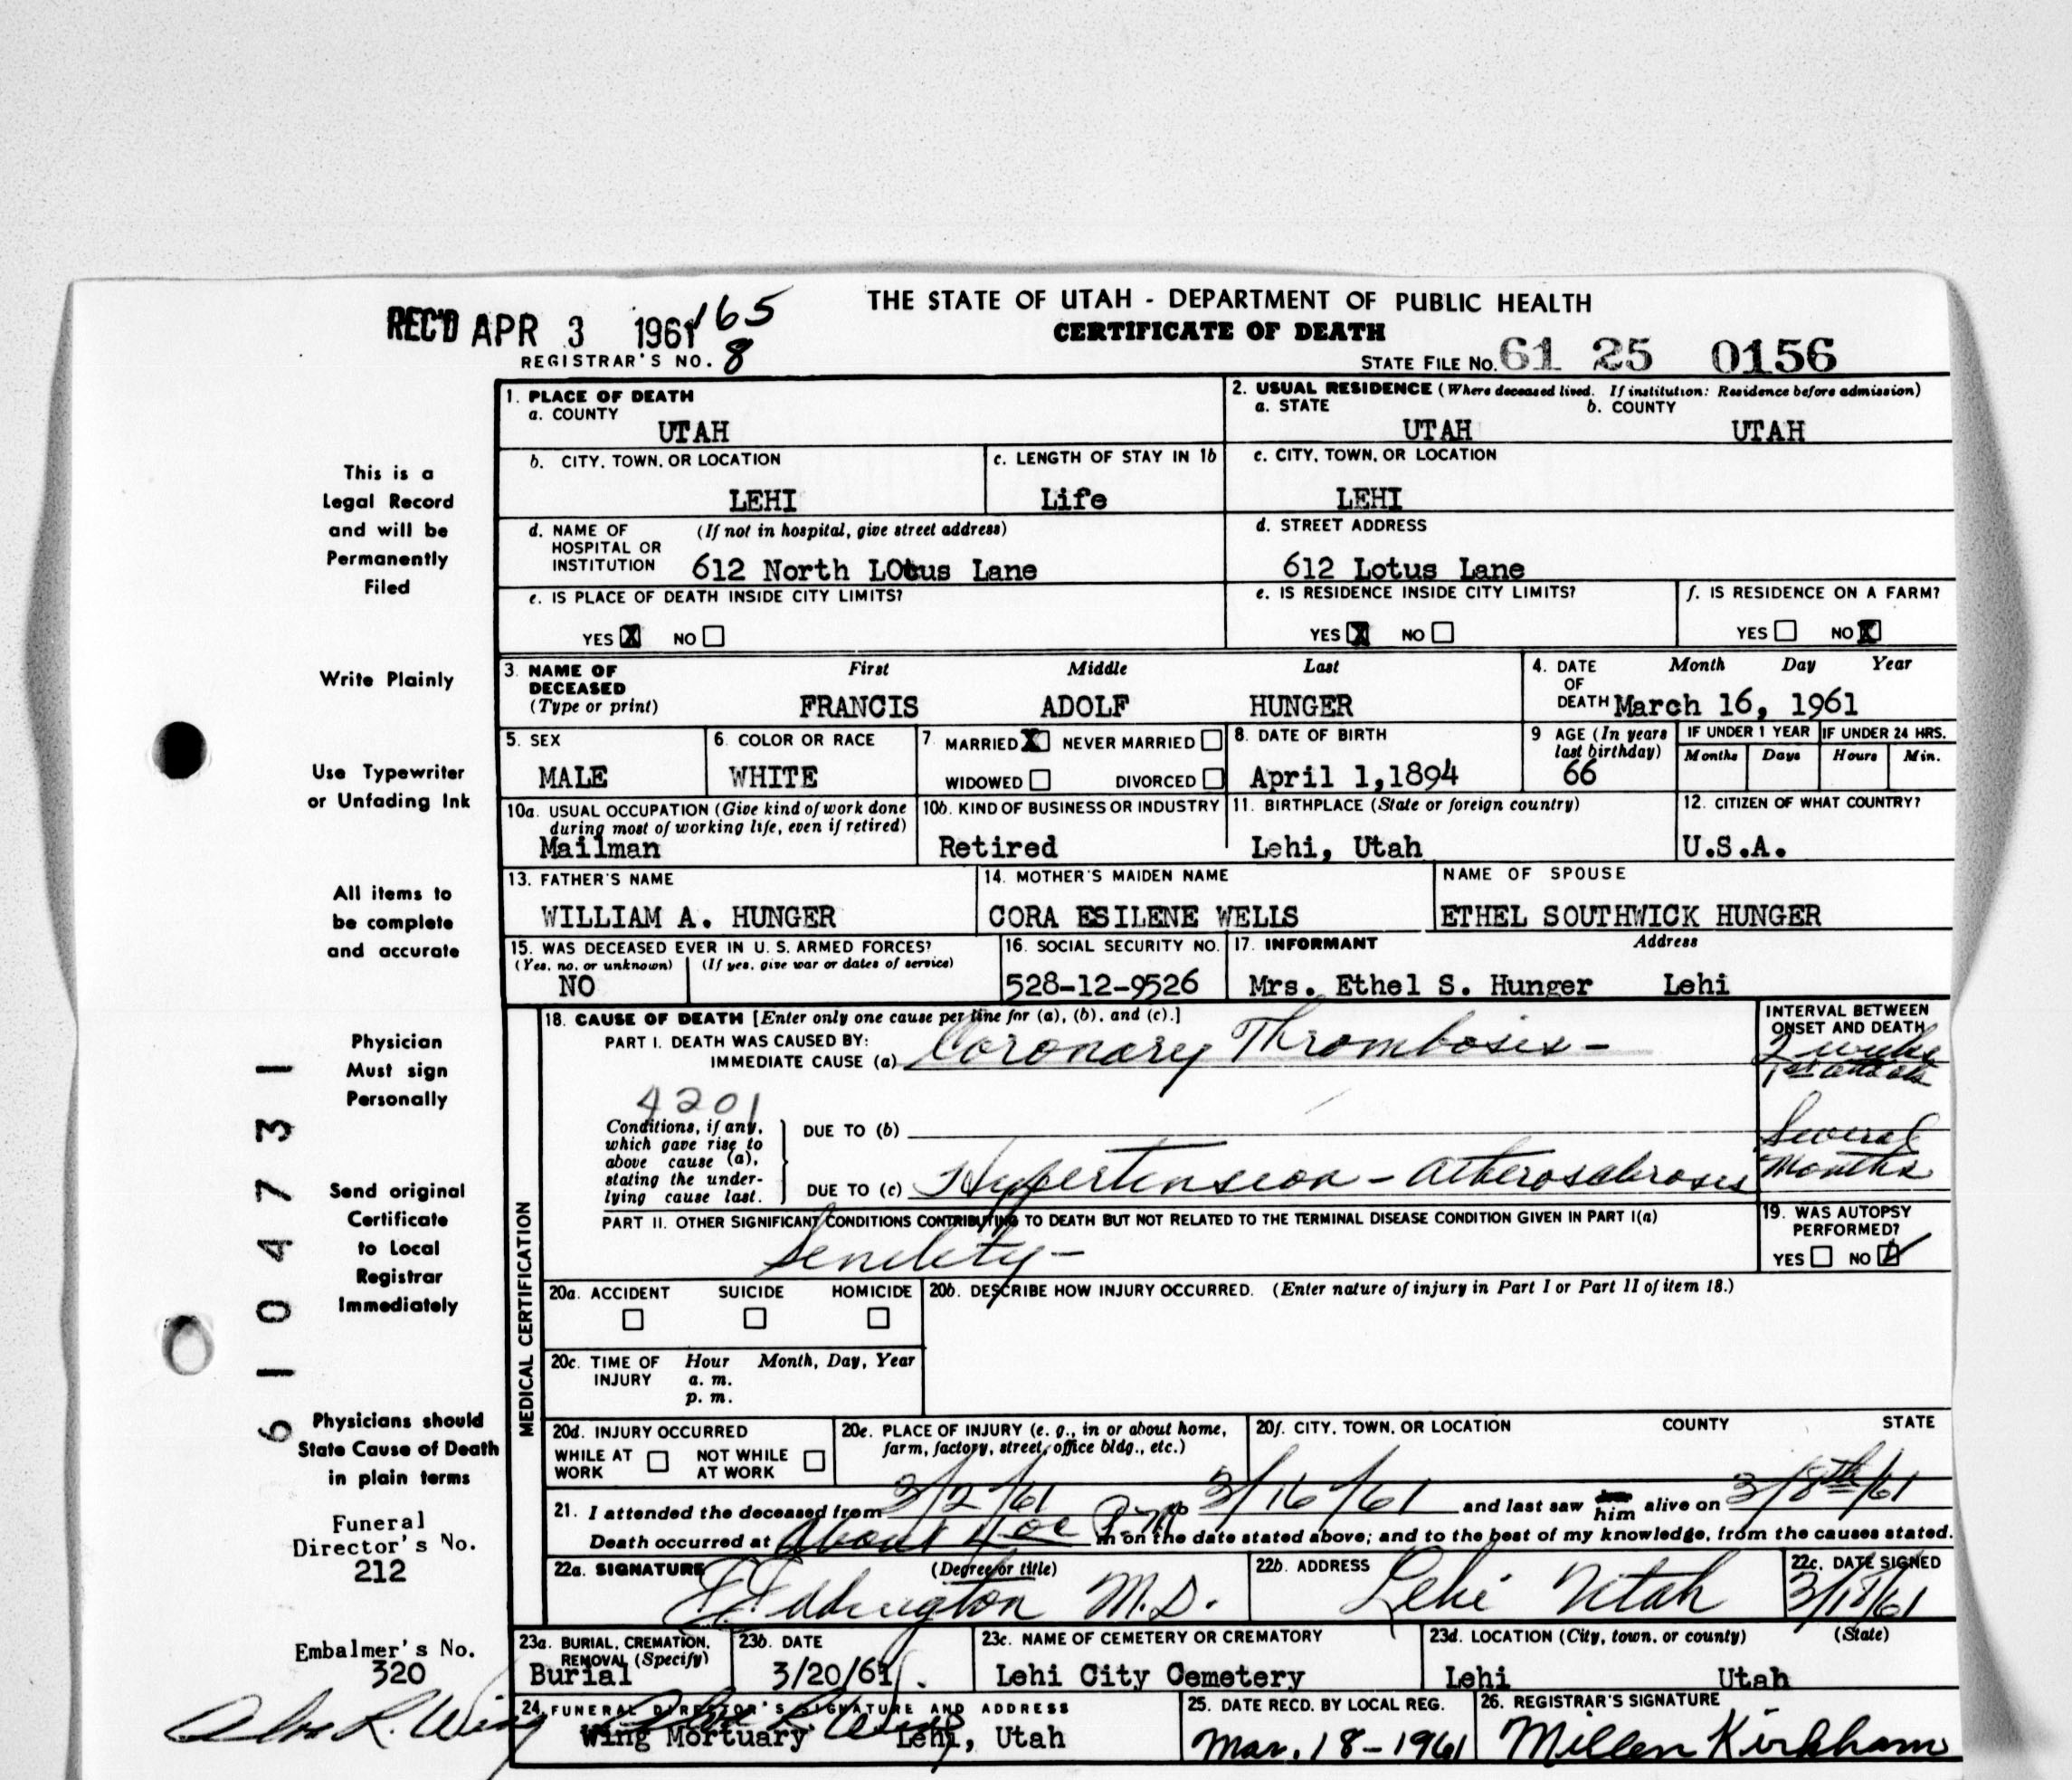 REC'D APR 3 1961 165
THE STATE OF UTAH - DEPARTMENT OF PUBLIC HEALTH
CERTIFICATE OF DEATH
REGISTRAR'S NO. 8
STATE FILE NO. 61 25 0156
This is a
Legal Record
and will be
Permanently
Filed
Write Plainly
Use Typewriter
or Unfading Ink
All items to
be complete
and accurate
Physician
Must sign
Personally
Send original
Certificate
to Local
Registrar
Immediately
Physicians should
State Cause of Death
in plain terms
Funeral
Director's No.
212
Embalmer's No.
320
6104731
1. PLACE OF DEATH
a. COUNTY
UTAH
2. USUAL RESIDENCE (Where deceased lived. If institution: Residence before admission)
a. STATE b. COUNTY
UTAH UTAH
b. CITY, TOWN, OR LOCATION
LEHI
c. LENGTH OF STAY IN 1b
Life
c. CITY, TOWN, OR LOCATION
LEHI
d. NAME OF (If not in hospital, give street address)
HOSPITAL OR
INSTITUTION 612 North LOtus Lane
d. STREET ADDRESS
612 Lotus Lane
e. IS PLACE OF DEATH INSIDE CITY LIMITS?
YES X NO
e. IS RESIDENCE INSIDE CITY LIMITS?
YES X NO
f. IS RESIDENCE ON A FARM?
YES NO X
3. NAME OF First Middle Last
DECEASED
(Type or print) FRANCIS ADOLF HUNGER
4. DATE Month Day Year
OF
DEATH March 16, 1961
5. SEX
MALE
6. COLOR OR RACE
WHITE
7. MARRIED X NEVER MARRIED
WIDOWED DIVORCED
8. DATE OF BIRTH
April 1,1894
9 AGE (In years
last birthday)
66
IF UNDER 1 YEAR IF UNDER 24 HRS.
Months Days Hours Min.
10a. USUAL OCCUPATION (Give kind of work done
during most of working life, even if retired)
Mailman
10b. KIND OF BUSINESS OR INDUSTRY
Retired
11. BIRTHPLACE (State or foreign country)
Lehi, Utah
12. CITIZEN OF WHAT COUNTRY?
U.S.A.
13. FATHER'S NAME
WILLIAM A. HUNGER
14. MOTHER'S MAIDEN NAME
CORA ESILENE WELLS
NAME OF SPOUSE
ETHEL SOUTHWICK HUNGER
15. WAS DECEASED EVER IN U. S. ARMED FORCES?
(Yes, no, or unknown) (If yes, give war or dates of service)
NO
16. SOCIAL SECURITY NO.
528-12-9526
17. INFORMANT Address
Mrs. Ethel S. Hunger Lehi
MEDICAL CERTIFICATION
18. CAUSE OF DEATH [Enter only one cause per line for (a), (b), and (c).]
PART I. DEATH WAS CAUSED BY:
IMMEDIATE CAUSE (a) Coronary Thrombosis -
INTERVAL BETWEEN
ONSET AND DEATH
2 weeks
4201
Conditions, if any,
which gave rise to
above cause (a),
stating the under-
lying cause last.
DUE TO (b)
DUE TO (c) Hypertension - Atherosclerosis
Several
Months
PART II. OTHER SIGNIFICANT CONDITIONS CONTRIBUTING TO DEATH BUT NOT RELATED TO THE TERMINAL DISEASE CONDITION GIVEN IN PART I(a)
Senility -
19. WAS AUTOPSY
PERFORMED?
YES NO
20a. ACCIDENT SUICIDE HOMICIDE
20b. DESCRIBE HOW INJURY OCCURRED. (Enter nature of injury in Part I or Part II of item 18.)
20c. TIME OF Hour Month, Day, Year
INJURY a. m.
p. m.
20d. INJURY OCCURRED
WHILE AT NOT WHILE
WORK AT WORK
20e. PLACE OF INJURY (e. g., in or about home,
farm, factory, street, office bldg., etc.)
20f. CITY, TOWN, OR LOCATION COUNTY STATE
21. I attended the deceased from 3/2/61 to 3/16/61 and last saw him alive on 3/8th/61
Death occurred at About 4 P.M. m on the date stated above; and to the best of my knowledge, from the causes stated.
22a. SIGNATURE (Degree or title)
Eddington M.D.
22b. ADDRESS
Lehi Utah
22c. DATE SIGNED
3/18/61
23a. BURIAL, CREMATION,
REMOVAL (Specify)
Burial
23b. DATE
3/20/61.
23c. NAME OF CEMETERY OR CREMATORY
Lehi City Cemetery
23d. LOCATION (City, town, or county) (State)
Lehi Utah
24. FUNERAL DIRECTOR'S SIGNATURE AND ADDRESS
Wing Mortuary Lehi, Utah
25. DATE RECD. BY LOCAL REG.
Mar. 18-1961
26. REGISTRAR'S SIGNATURE
Millen Kirkham